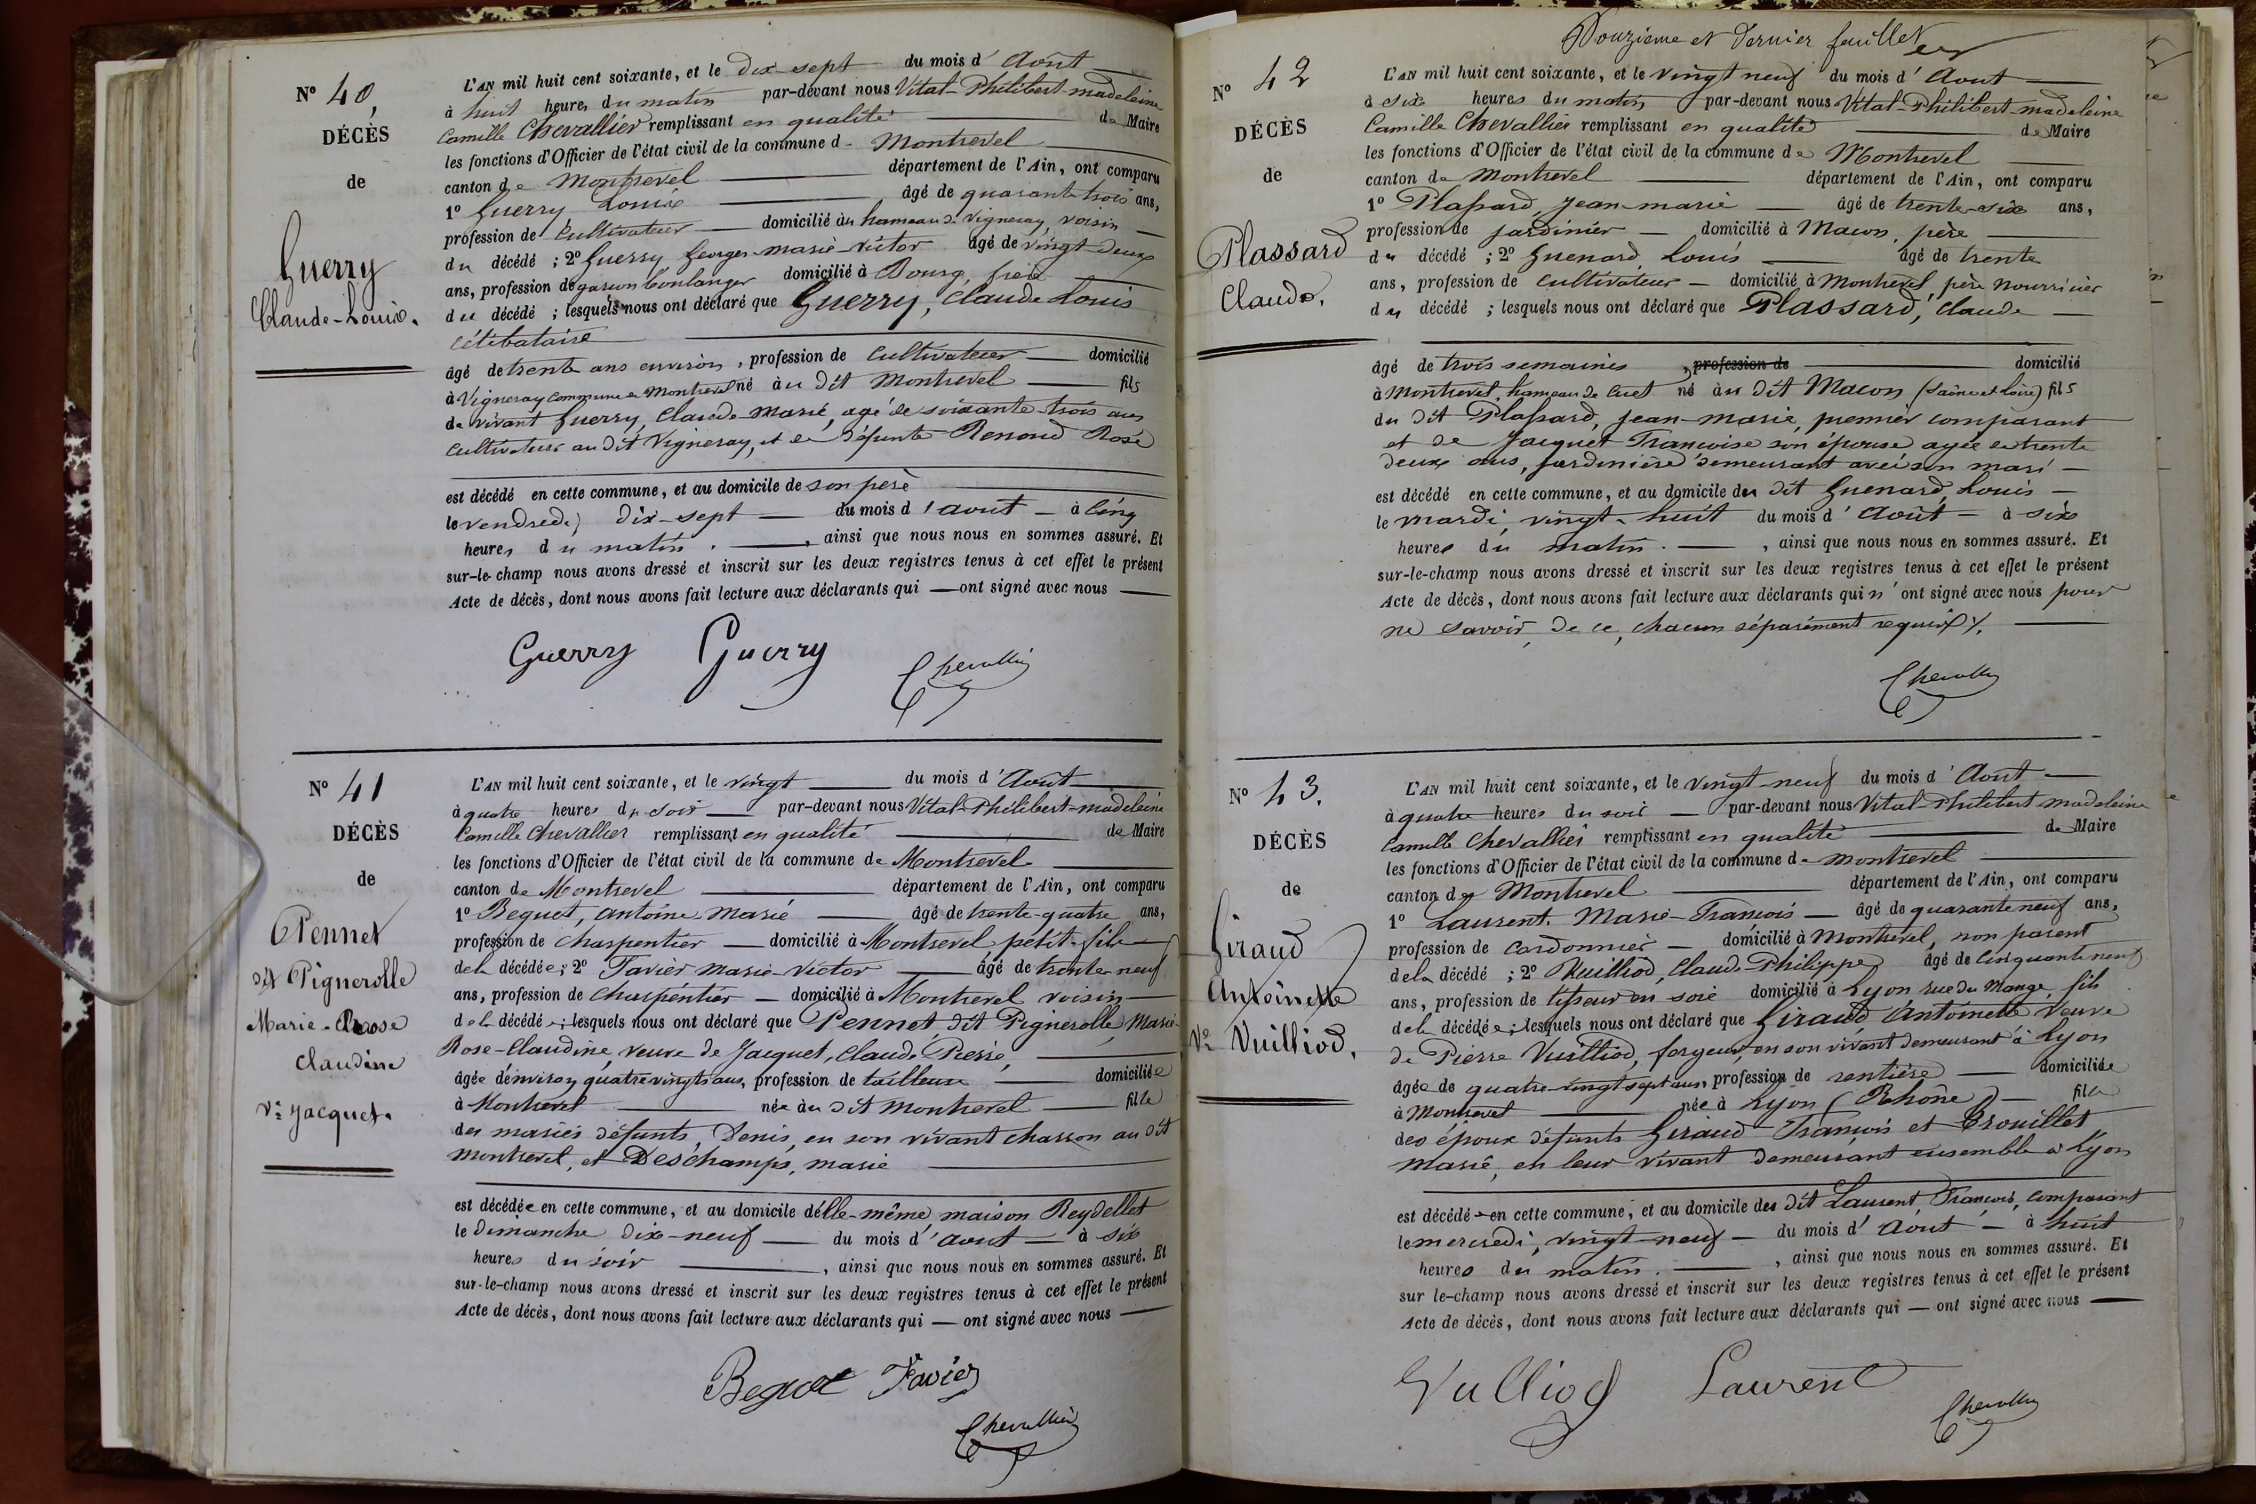 N° 40,
DÉCÈS
de
Guerry
Claude-Louis.
L'AN mil huit cent soixante, et le dix-sept du mois d'Août
à huit heures du matin par-devant nous Vital-Philibert-madeleine
Camille Chevallier remplissant en qualité de Maire
les fonctions d'Officier de l'état civil de la commune de Montrevel
canton de Montrevel département de l'Ain, ont comparu
1° Guerry Louis âgé de quarante trois ans,
profession de Cultivateur domicilié au hameau de Vigneray, voisin
du décédé ; 2° Guerry Georges-marie-victor âgé de vingt-deux
ans, profession de garçon boulanger domicilié à Bourg, frère
du décédé ; lesquels nous ont déclaré que Guerry, Claude Louis
célibataire
âgé de trente ans environ, profession de Cultivateur domicilié
à Vigneray commune de Montrevel né au dit Montrevel fils
de vivant Guerry, Claude marie, agé de soixante-trois ans
cultivateur au dit Vigneray, et de défunte Renoud Rose
est décédé en cette commune, et au domicile de son père
le vendredi, dix-sept du mois d'août à cinq
heures du matin. , ainsi que nous nous en sommes assuré. Et
sur-le-champ nous avons dressé et inscrit sur les deux registres tenus à cet effet le présent
Acte de décès, dont nous avons fait lecture aux déclarants qui ont signé avec nous
Guerry Guerry Chevallier
N° 41
DÉCÈS
de
Pennet
dit Pignerolle
Marie-Rose
Claudine
Ve Jacquet.
L'AN mil huit cent soixante, et le vingt du mois d'Août
à quatre heures du soir par-devant nous Vital-Philibert-madeleine
Camille Chevallier remplissant en qualité de Maire
les fonctions d'Officier de l'état civil de la commune de Montrevel
canton de Montrevel département de l'Ain, ont comparu
1° Beguet, antoine marie âgé de trente-quatre ans,
profession de charpentier domicilié à Montrevel petit-fils
de la décédée ; 2° Favier marie-victor âgé de trente-neuf
ans, profession de charpentier domicilié à Montrevel voisin
de la décédée ; lesquels nous ont déclaré que Pennet dit Pignerolle, Marie-
Rose-Claudine, veuve de Jacquet, Claude Pierre,
âgée d'environ quatre vingts ans, profession de tailleuse domiciliée
à Montrevel née au dit Montrevel fille
des mariés défunts, Denis, en son vivant charron au dit
Montrevel, et Deschamps, marie
est décédée en cette commune, et au domicile d'elle-même maison Reydellet
le dimanche dix-neuf du mois d'août à six
heures du soir , ainsi que nous nous en sommes assuré. Et
sur-le-champ nous avons dressé et inscrit sur les deux registres tenus à cet effet le présent
Acte de décès, dont nous avons fait lecture aux déclarants qui ont signé avec nous
Beguet Favier
Chevallier
Douzième et dernier feuillet
N° 42
DÉCÈS
de
Plassard
Claude.
L'AN mil huit cent soixante, et le vingt neuf du mois d'Aout
à six heures du matin par-devant nous Vital-Philibert-madeleine
Camille Chevallier remplissant en qualité de Maire
les fonctions d'Officier de l'état civil de la commune de Montrevel
canton de Montrevel département de l'Ain, ont comparu
1° Plassard, Jean-marie âgé de trente-six ans,
profession de jardinier domicilié à Macon, père
du décédé ; 2° Guenard Louis âgé de trente
ans, profession de Cultivateur domicilié à Montrevel, père nourricier
du décédé ; lesquels nous ont déclaré que Plassard, Claude
âgé de trois semaines, profession de domicilié
à Montrevel, hameau de Cuet né au dit Macon (Saône et Loire) fils
du dit Plassard, Jean-marie, premier comparant
et de Jacquet Françoise son épouse agée de trente
deux ans, jardinière demeurant avec son mari
est décédé en cette commune, et au domicile du dit Guenard, Louis
le mardi, vingt-huit du mois d'Août à six
heures du matin. , ainsi que nous nous en sommes assuré. Et
sur-le-champ nous avons dressé et inscrit sur les deux registres tenus à cet effet le présent
Acte de décès, dont nous avons fait lecture aux déclarants qui n'ont signé avec nous pour
ne savoir, de ce, chacun séparément requis.
Chevallier
N° 43.
DÉCÈS
de
Giraud
Antoinette
Ve Vuilliod.
L'AN mil huit cent soixante, et le vingt-neuf du mois d'Aout
à quatre heures du soir par-devant nous Vital-Philibert madeleine
Camille Chevallier remplissant en qualité de Maire
les fonctions d'Officier de l'état civil de la commune de Montrevel
canton de Montrevel département de l'Ain, ont comparu
1° Laurent. Marie-François âgé de quarante neuf ans,
profession de cordonnier domicilié à Montrevel, non parent
de la décédé ; 2° Vuilliod, Claude-Philippe, âgé de cinquante neuf
ans, profession de tisseur en soie domicilié à Lyon rue du Mange, fils
de la décédée ; lesquels nous ont déclaré que Giraud Antoinette veuve
de Pierre Vuilliod, forgeur, en son vivant demeurant à Lyon
âgée de quatre-vingt sept ans, profession de rentière domiciliée
à Montrevel née à Lyon (Rhône) fille
des époux défunts Giraud François et Trouillet
Marie, en leur vivant demeurant ensemble à Lyon
est décédée en cette commune, et au domicile du dit Laurent, François, comparant
le mercredi, vingt-neuf du mois d'Août à huit
heures du matin. , ainsi que nous nous en sommes assuré. Et
sur le-champ nous avons dressé et inscrit sur les deux registres tenus à cet effet le présent
Acte de décès, dont nous avons fait lecture aux déclarants qui ont signé avec nous
Vulliod Laurent
Chevallier